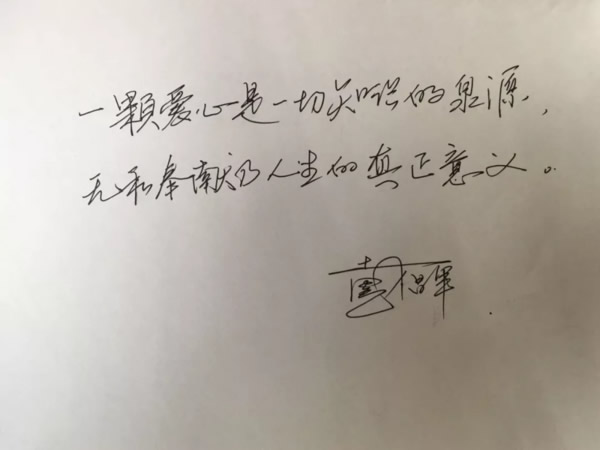 一颗爱心是一切关怀的泉源，
无私奉献乃人生的真正意义。